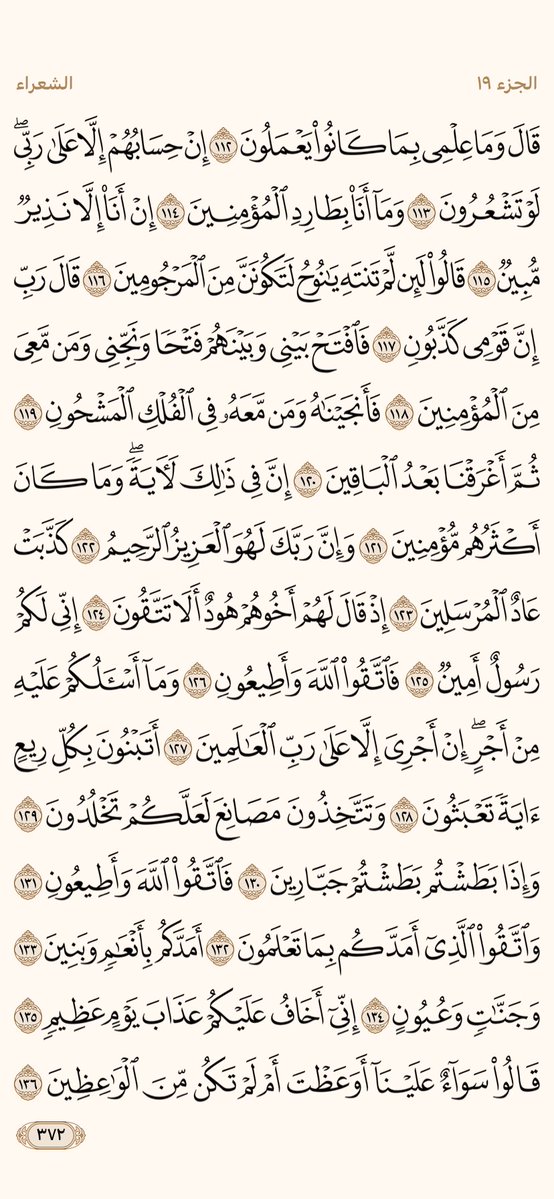 الجزء ١٩
الشعراء
قَالَ وَمَا عِلْمِى بِمَا كَانُوا۟ يَعْمَلُونَ ١١٢ إِنْ حِسَابُهُمْ إِلَّا عَلَىٰ رَبِّى ۖ
لَوْ تَشْعُرُونَ ١١٣ وَمَآ أَنَا۠ بِطَارِدِ ٱلْمُؤْمِنِينَ ١١٤ إِنْ أَنَا۠ إِلَّا نَذِيرٌ
مُّبِينٌ ١١٥ قَالُوا۟ لَئِن لَّمْ تَنتَهِ يَـٰنُوحُ لَتَكُونَنَّ مِنَ ٱلْمَرْجُومِينَ ١١٦ قَالَ رَبِّ
إِنَّ قَوْمِى كَذَّبُونِ ١١٧ فَٱفْتَحْ بَيْنِى وَبَيْنَهُمْ فَتْحًا وَنَجِّنِى وَمَن مَّعِىَ
مِنَ ٱلْمُؤْمِنِينَ ١١٨ فَأَنجَيْنَـٰهُ وَمَن مَّعَهُۥ فِى ٱلْفُلْكِ ٱلْمَشْحُونِ ١١٩
ثُمَّ أَغْرَقْنَا بَعْدُ ٱلْبَاقِينَ ١٢٠ إِنَّ فِى ذَٰلِكَ لَـَٔايَةً ۖ وَمَا كَانَ
أَكْثَرُهُم مُّؤْمِنِينَ ١٢١ وَإِنَّ رَبَّكَ لَهُوَ ٱلْعَزِيزُ ٱلرَّحِيمُ ١٢٢ كَذَّبَتْ
عَادٌ ٱلْمُرْسَلِينَ ١٢٣ إِذْ قَالَ لَهُمْ أَخُوهُمْ هُودٌ أَلَا تَتَّقُونَ ١٢٤ إِنِّى لَكُمْ
رَسُولٌ أَمِينٌ ١٢٥ فَٱتَّقُوا۟ ٱللَّهَ وَأَطِيعُونِ ١٢٦ وَمَآ أَسْـَٔلُكُمْ عَلَيْهِ
مِنْ أَجْرٍ ۖ إِنْ أَجْرِىَ إِلَّا عَلَىٰ رَبِّ ٱلْعَـٰلَمِينَ ١٢٧ أَتَبْنُونَ بِكُلِّ رِيعٍ
ءَايَةً تَعْبَثُونَ ١٢٨ وَتَتَّخِذُونَ مَصَانِعَ لَعَلَّكُمْ تَخْلُدُونَ ١٢٩
وَإِذَا بَطَشْتُم بَطَشْتُمْ جَبَّارِينَ ١٣٠ فَٱتَّقُوا۟ ٱللَّهَ وَأَطِيعُونِ ١٣١
وَٱتَّقُوا۟ ٱلَّذِىٓ أَمَدَّكُم بِمَا تَعْلَمُونَ ١٣٢ أَمَدَّكُم بِأَنْعَـٰمٍ وَبَنِينَ ١٣٣
وَجَنَّـٰتٍ وَعُيُونٍ ١٣٤ إِنِّىٓ أَخَافُ عَلَيْكُمْ عَذَابَ يَوْمٍ عَظِيمٍ ١٣٥
قَالُوا۟ سَوَآءٌ عَلَيْنَآ أَوَعَظْتَ أَمْ لَمْ تَكُن مِّنَ ٱلْوَٰعِظِينَ ١٣٦
٣٧٢